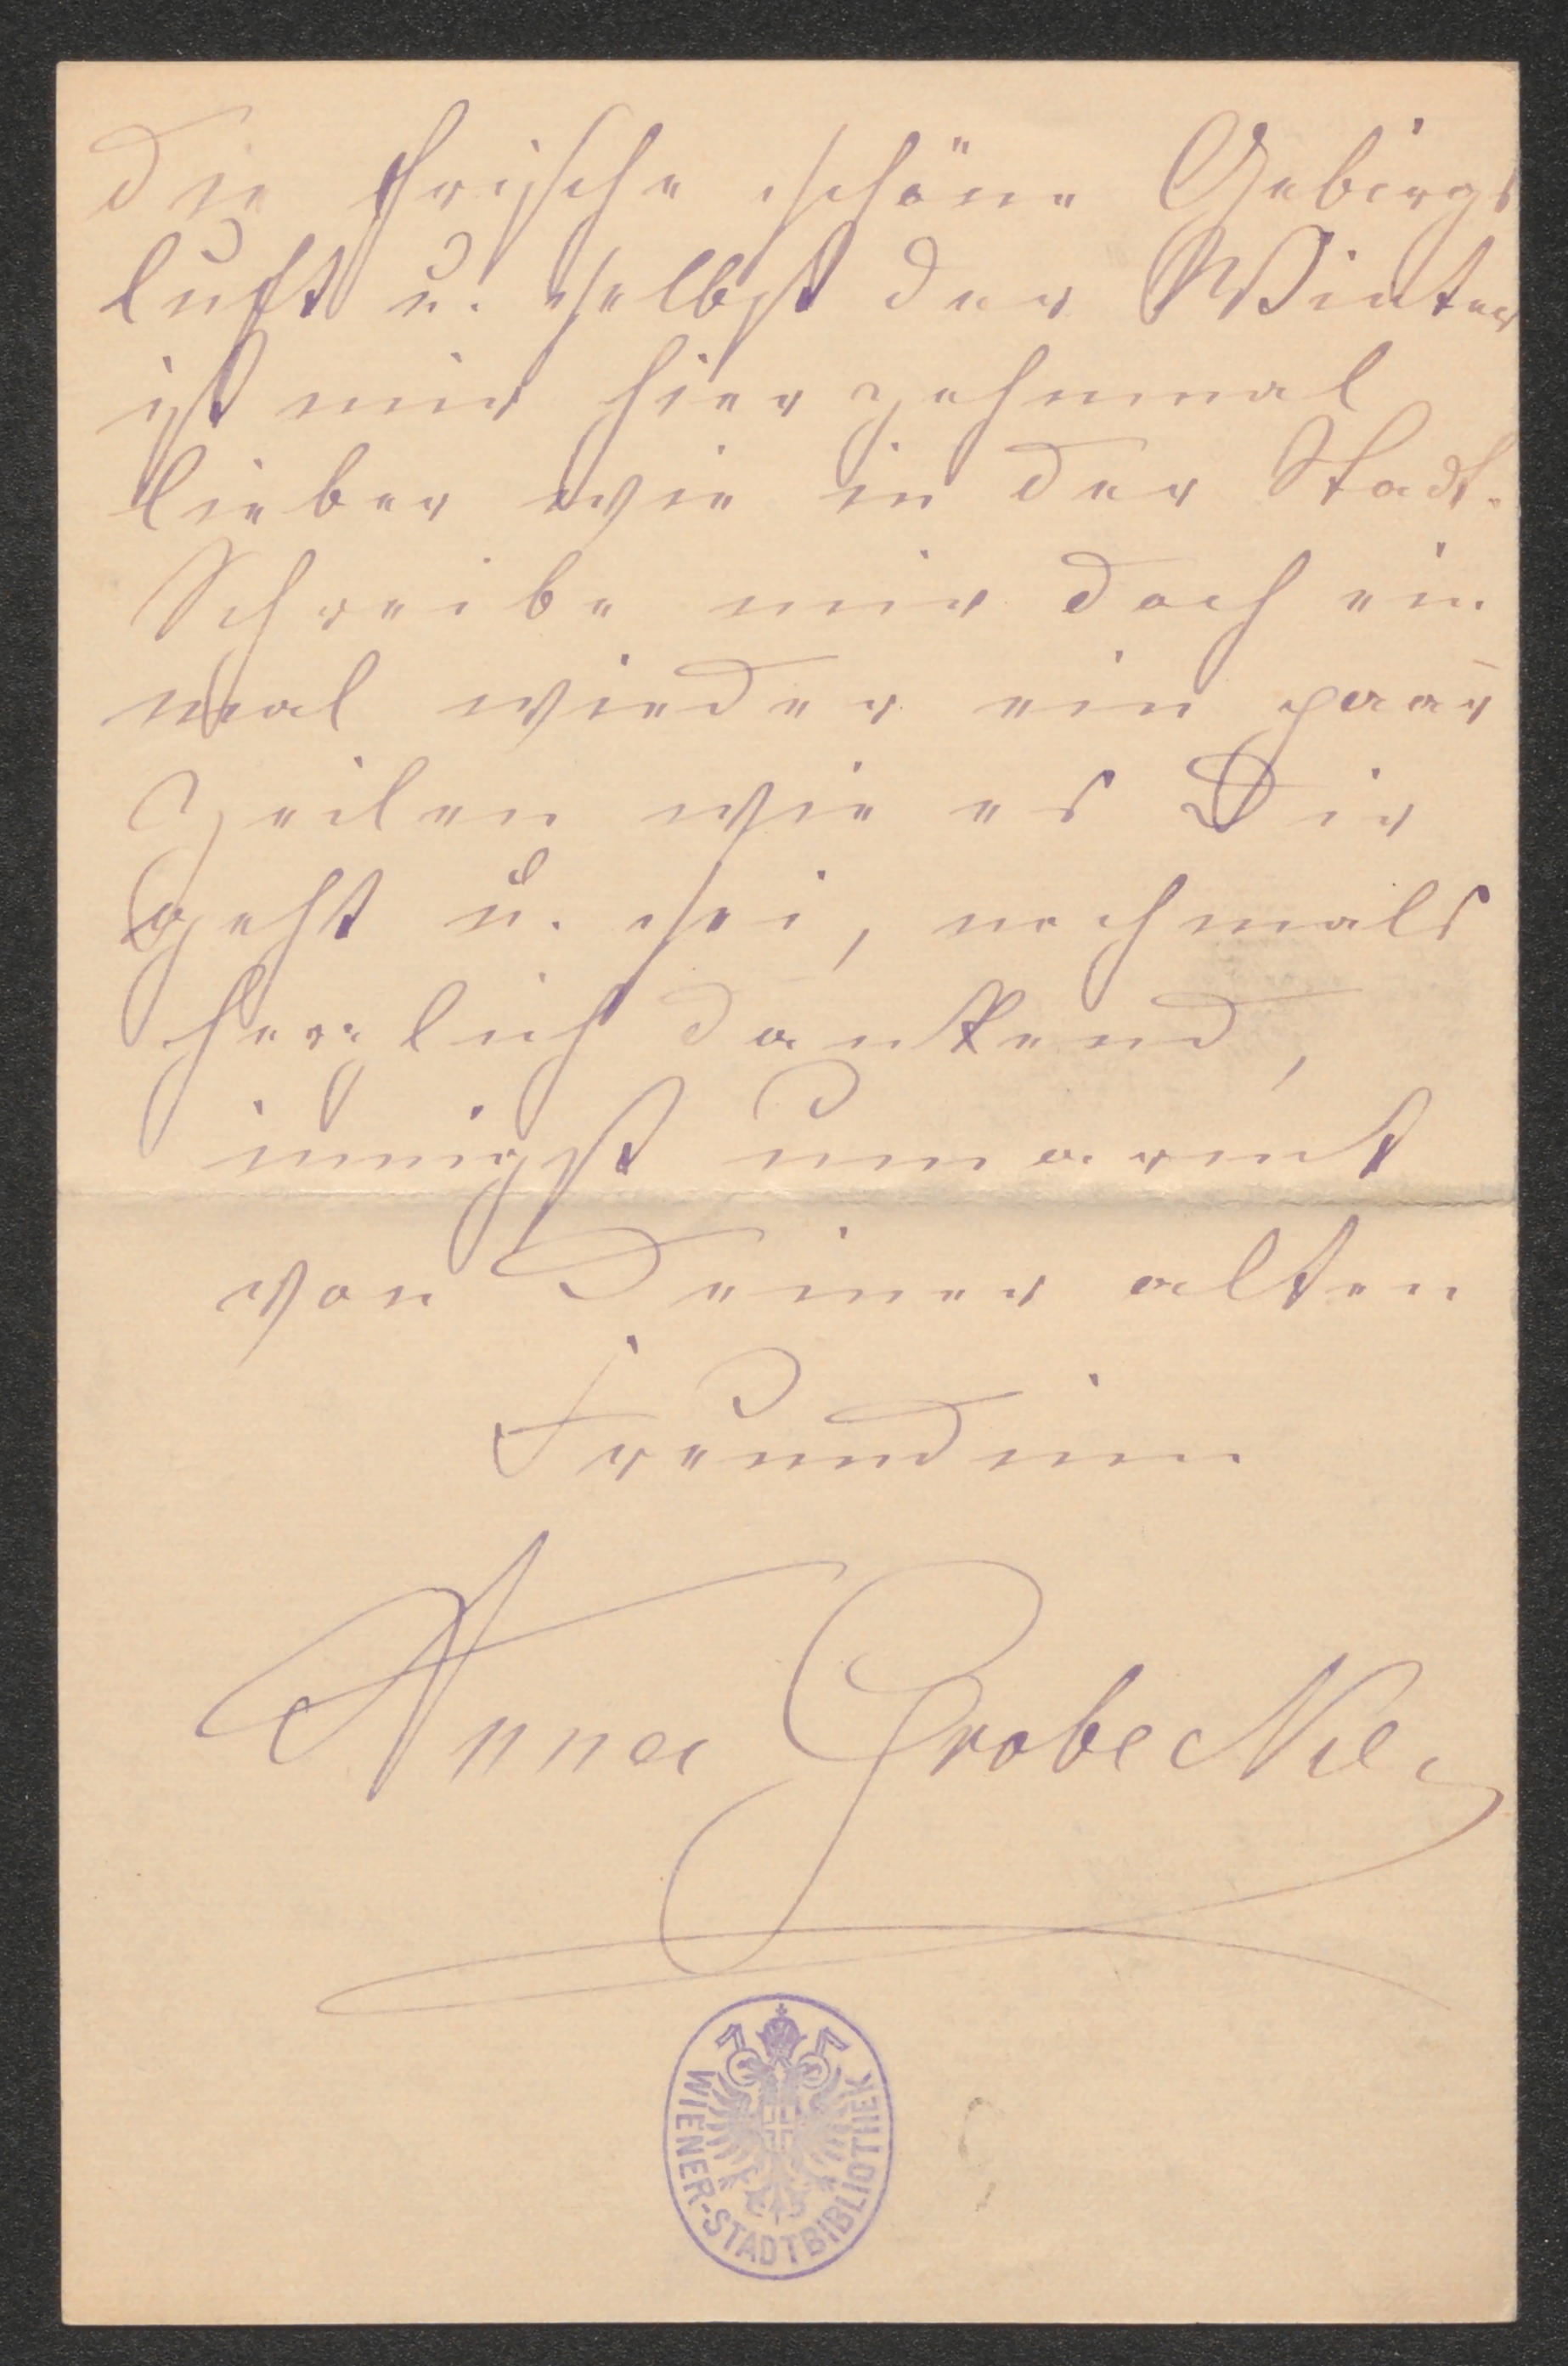 die frische schöne Gebirgs
luft u. selbst der Winter
ist mir hier zehnmal
lieber wie in der Stadt.
Schreibe mir doch ein
mal wieder ein paar
Zeilen wie es Dir
geht u. sei, nochmals
herzlich dankend,
innigst umarmt
von Deiner alten
Freundinn
Anna Grobecker
WIENER-STADTBIBLIOTHEK